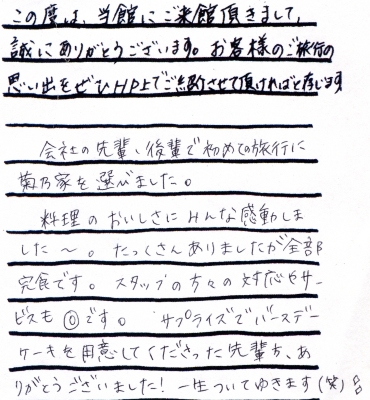 この度は、当館にご来館頂きまして、
誠にありがとうございます。お客様のご旅行の
思い出をぜひHP上でご紹介させて頂ければと存じます
会社の先輩、後輩で初めての旅行に
菊乃家を選びました。
料理のおいしさにみんな感動しま
した〜。たっくさんありましたが全部
完食です。スタッフの方々の対応やサー
ビスも◎です。サプライズでバースデー
ケーキを用意してくださった先輩方、あ
りがとうございました!一生ついてゆきます(笑)